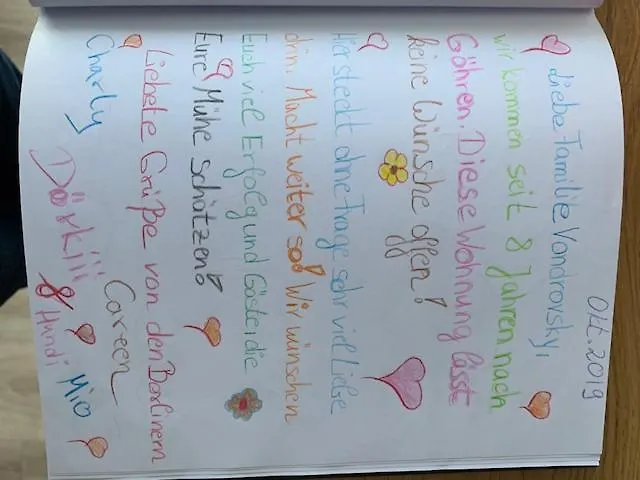 Okt. 2019
Liebe Familie Vondrovsky,
wir kommen seit 8 Jahren nach
Göhren. Diese Wohnung lässt
keine Wünsche offen!
Hier steckt ohne Frage sehr viel Liebe
drin. Macht weiter so! Wir wünschen
Euch viel Erfolg und Gäste, die
Eure Mühe schätzen!
Liebste Grüße von den Berlinern
Charly Careen
Dörkiii Mio
& Hundi